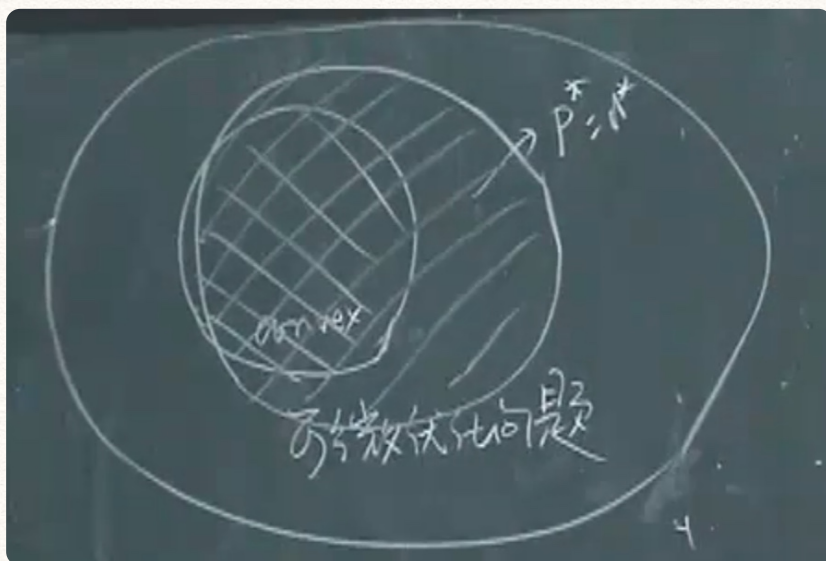 p*=d*
convex
可微优化问题